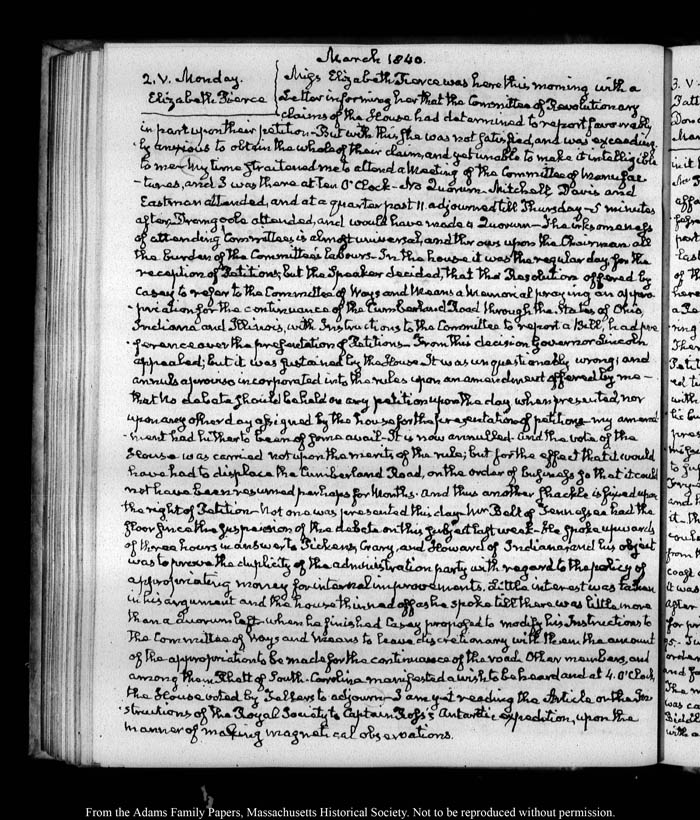 March 1840.
2. V. Monday.
Elizabeth Pierce
Miss Elizabeth Pierce was here this morning with a
Letter informing her that the Committee of Revolutionary
claims of the House had determined to report favourably
in part upon their petition – But with this she was not satisfied, and was exceeding-
-ly anxious to obtain the whole of their claim, and yet unable to make it intelligible
to me – My time straitened me to attend a Meeting of the Committee of Manufac-
-tures, and I was there at ten O'Clock – No Quorum – Mitchell Davis and
Eastman attended, and at a quarter past 11. adjourned till Thursday – 5 minutes
after, Dromgoole attended, and would have made a Quorum – The irksomeness
of attending Committees is almost universal, and throws upon the Chairman all
the burden of the Committee's labours – In the house it was the regular day for the
reception of Petitions; but the Speaker decided, that the Resolution offered by
Casey to refer to the Committee of Ways and Means a Memorial praying an appro-
-priation for the continuance of the Cumberland Road through the States of Ohio,
Indiana and Illinois, with Instructions to the Committee to report a Bill, had pre
-ference over the presentation of Petitions – From this decision Governor Lincoln
appealed; but it was sustained by the House – It was unquestionably wrong; and
annuls a proviso incorporated into the rules upon an amendment offered by me –
that no debate should be held on any petition upon the day when presented, nor
upon any other day assigned by the house for the presentation of petitions – my amend
ment had hitherto been of some avail – It is now annulled – and the vote of the
House was carried not upon the merits of the rule; but for the effect that it would
have had to displace the Cumberland Road, on the order of business so that it could
not have been resumed perhaps for Months. And thus another shackle is fixed upon
the right of Petition – Not one was presented this day – Wm Bell of Tennessee had the
floor since the suspension of the debate on this subject last week – He spoke upwards
of three hours in answer to Pickens, Crary, and Howard of Indiana and his object
was to prove the duplicity of the administration party with regard to the policy of
appropriating money for internal improvements. Little interest was taken
in his argument and the house thinned off as he spoke till there was little more
than a quorum left – when he finished Casey proposed to modify his Instructions to
the Committee of Ways and Means to leave discretionary with them the amount
of the appropriation to be made for the continuance of the road. Other members, and
among them Rhett of South-Carolina manifested a wish to be heard and at 4. O'Clock,
the House voted by Tellers to adjourn – I am yet reading the Article on the In-
structions of the Royal Society to Captain Ross's Antarctic expedition, upon the
manner of making magnetical observations.
From the Adams Family Papers, Massachusetts Historical Society. Not to be reproduced without permission.